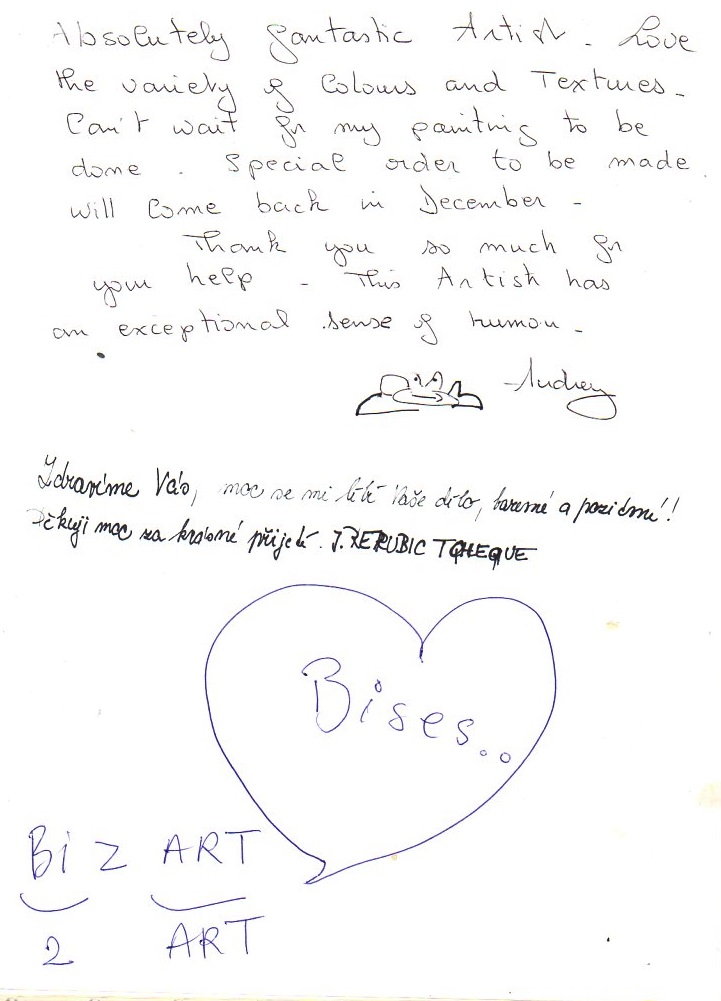 Absolutely fantastic Artist. Love
the variety of Colours and Textures -
Can't wait for my painting to be
done. Special order to be made.
will Come back in December -
Thank you so much for
your help - This Artist has
an exceptional sense of humour -
Audrey
Zdravíme Vás, moc se mi líbí Vaše dílo, barevné a pozitivní!
Děkuji moc za krásné přijetí. J. REPUBIC TCHEQUE
Bises...
Bi Z ART
2 ART